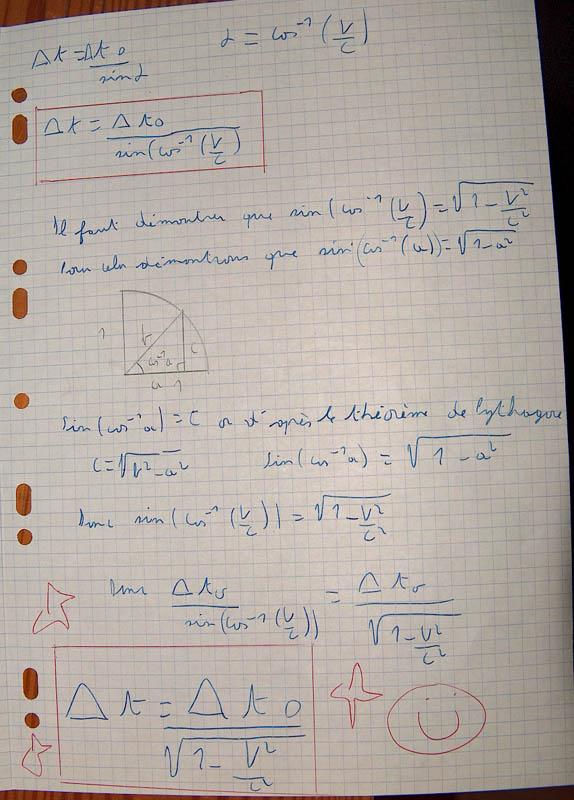 Δt = Δt0 / sin α    α = cos⁻¹(v/c)
Δt = Δt0 / sin(cos⁻¹(v/c)
Il faut démontrer que sin(cos⁻¹(v/c) = √(1 - v²/c²)
Pour cela démontrons que sin(cos⁻¹(a)) = √(1-a²)
1
b
cos⁻¹a
c
a 1
Sin(cos⁻¹a) = c or d'après le théorème de Pythagore
c = √(b²-a²)    Sin(cos⁻¹a) = √(1-a²)
Donc sin(cos⁻¹(v/c)) = √(1-v²/c²)
Donc Δt0 / sin(cos⁻¹(v/c)) = Δt0 / √(1-v²/c²)
Δt = Δt0 / √(1-v²/c²)